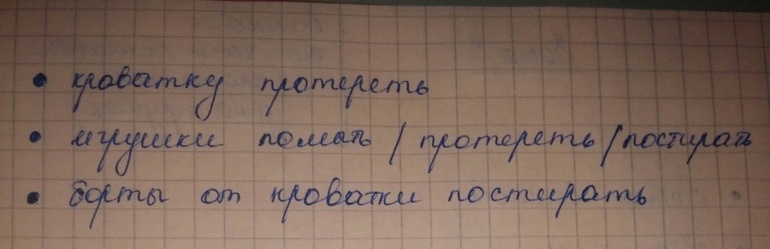 • кроватку протереть
• игрушки помыть / протереть / постирать
• борты от кроватки постирать